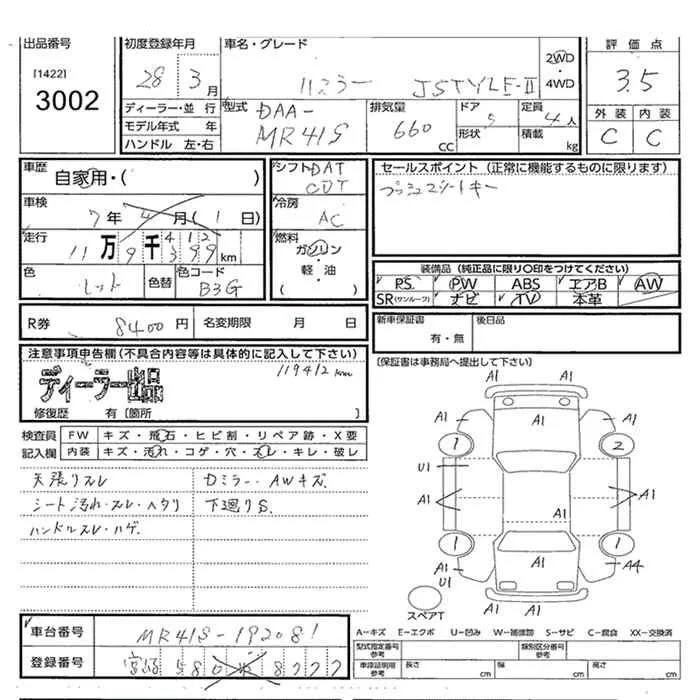 出品番号
[1422]
3002
初度登録年月
28 3月
車名・グレード
ハスラー JSTYLE-II
2WD
・
4WD
評価点
3.5
外装 内装
C C
ディーラー・並行
モデル年式 年
ハンドル 左・右
型式 DAA-
MR41S
排気量
660 CC
ドア 5
形状
定員 4人
積載 kg
車歴
自家用・( )
車検
7年 4月(1日)
走行
11万9千399km
412
色 レット 色替 色コード
B3G
シフト DAT
CDT
冷房
AC
燃料
ガソリン
・
軽・油
( )
セールスポイント (正常に機能するものに限ります)
プッシュスタートキー
装備品 (純正品に限り○印をつけてください)
PS PW ABS エアB AW
SR(サンルーフ) ナビ TV 本革
R券 8400円 名変期限 月 日
新車保証書
有・無
後日品
注意事項申告欄(不具合内容等は具体的に記入して下さい)
119412km
ディーラー出品
修復歴 有〔箇所 〕
(保証書は事務局へ提出して下さい)
検査員
記入欄
FW キズ・飛石・ヒビ割・リペア跡・X要
内装 キズ・汚れ・コゲ・穴・スレ・キレ・破レ
天張りスレ
シート汚れ・スレ・ヘタリ
ハンドルスレ・ハゲ
Dミラー・AWキズ
下廻りS
A1 A1
A1 A1 A1
1 2
U1
A1 A1 A1
1 1
A1 A1 A4
U1
A1 A1
スペアT
A-キズ E-エクボ U-凹み W-補修跡 S-サビ C-腐食 XX-交換済
車台番号 MR41S-192081
登録番号 宮崎 580 8777
型式指定番号
参考
類別区分番号
参考
車庫証明用
参考
長さ cm
幅 cm
高さ cm